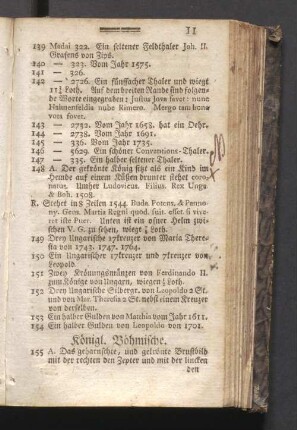 11
139 Madai 322. Ein seltener Feldthaler Joh. II.
Grafens von Zips.
140 — 323. Vom Jahr 1575.
141 — 326.
142 — 2726. Ein fünffacher Thaler und wiegt
11¾ Loth. Auf dem breiten Rande sind folgen-
de Worte eingegraben: Julius Jove favet: nunc
vors fovet.
143 — 2732. Vom Jahr 1658. hat ein Oehr.
144 — 2738. Vom Jahr 1691.
145 — 336. Vom Jahr 1735.
146 — 5629. Ein schöner Conventions-Thaler.
147 — 335. Ein halber seltener Thaler.
148 A. Der gekrönte König sitzt als ein Kind im
Hemde auf einem Küßen drunter stehet coro-
natus. Umher Ludovicus. Filius. Rex Unga
& Boh. 1508.
R. Stehet in 8 Zeilen 1544. Bodo. Potom. & Panno-
ny. Grem. Martis Regni quod. suit. esset. si vive-
ret iste Puer. Unten ist ein offner Helm zwi-
schen V. G. zu sehen, wiegt ¾ Loth.
149 Drey Ungarische 17kreuzer von Maria There-
sia von 1743. 1747. 1764.
150 Ein Ungarischer 17kreuzer und 7kreuzer von
Leopold
151 Zwey Krönungsmünzen von Ferdinando II.
zum Könige von Ungarn, wiegen ¾ Loth.
152 Drey Ungarische Silbergr. von Leopoldo 2 St.
und von Mar. Theresia 2 St. nebst einem Kreuzer
von derselben.
153 Ein halber Gulden von Matthia vom Jahr 1611.
154 Ein halber Gulden von Leopoldo von 1701.
Königl. Böhmische.
155 A. Das geharnischte, und gekrönte Brustbild
mit der rechten den Zepter und mit der lincken
den